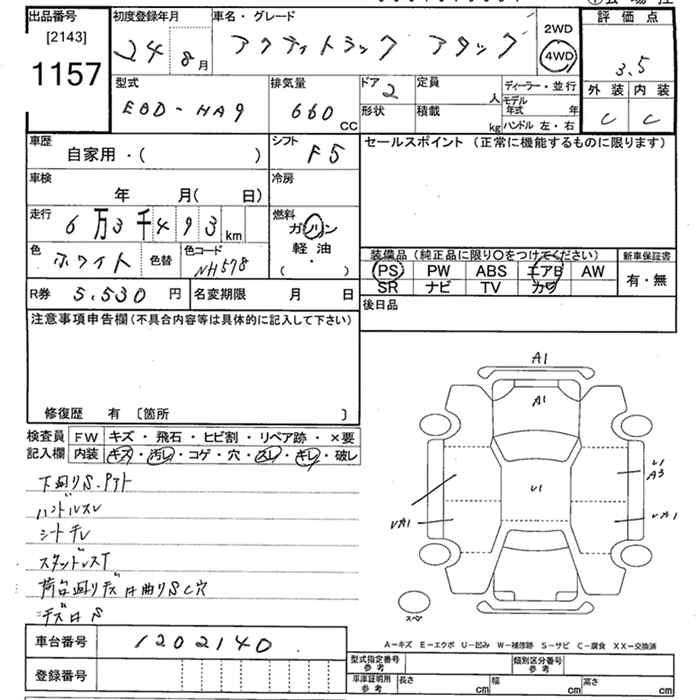 出品番号 初度登録年月 車名・グレード 2WD 評価点
[2143] 24年8月 アクティトラック アタック 4WD 3.5
1157 外装 内装
型式 排気量 ドア 2 定員 人 ディーラー・並行 C C
EBD-HA9 660 CC 形状 積載 kg モデル年式 年
ハンドル 左・右
車歴 シフト セールスポイント (正常に機能するものに限ります)
自家用・( ) F5
車検 冷房
年 月( 日)
走行 燃料
6万3千493km ガソリン
色 ホワイト 色替 色コード NH578 軽油
( ・ )
装備品 (純正品に限り○をつけてください) 新車保証書
PS PW ABS エアB AW 有・無
SR ナビ TV カワ
R券 5.530 円 名変期限 月 日 後日品
注意事項申告欄 (不具合内容等は具体的に記入して下さい)
修復歴 有 〔箇所 〕
検査員 FW キズ・飛石・ヒビ割・リペア跡・×要
記入欄 内装 キズ・汚レ・コゲ・穴・スレ・キレ・破レ
A1
A1
U1
U1
A3
UA1
UA1
スペ
下廻りS.
ハンドルスレ
シートキレ
車台番号 1202140
登録番号
A-キズ E-エクボ U-凹み W-補修跡 S-サビ C-腐食 XX-交換済
型式指定番号 参考 類別区分番号 参考
車庫証明用 参考 長さ cm 幅 cm 高さ cm